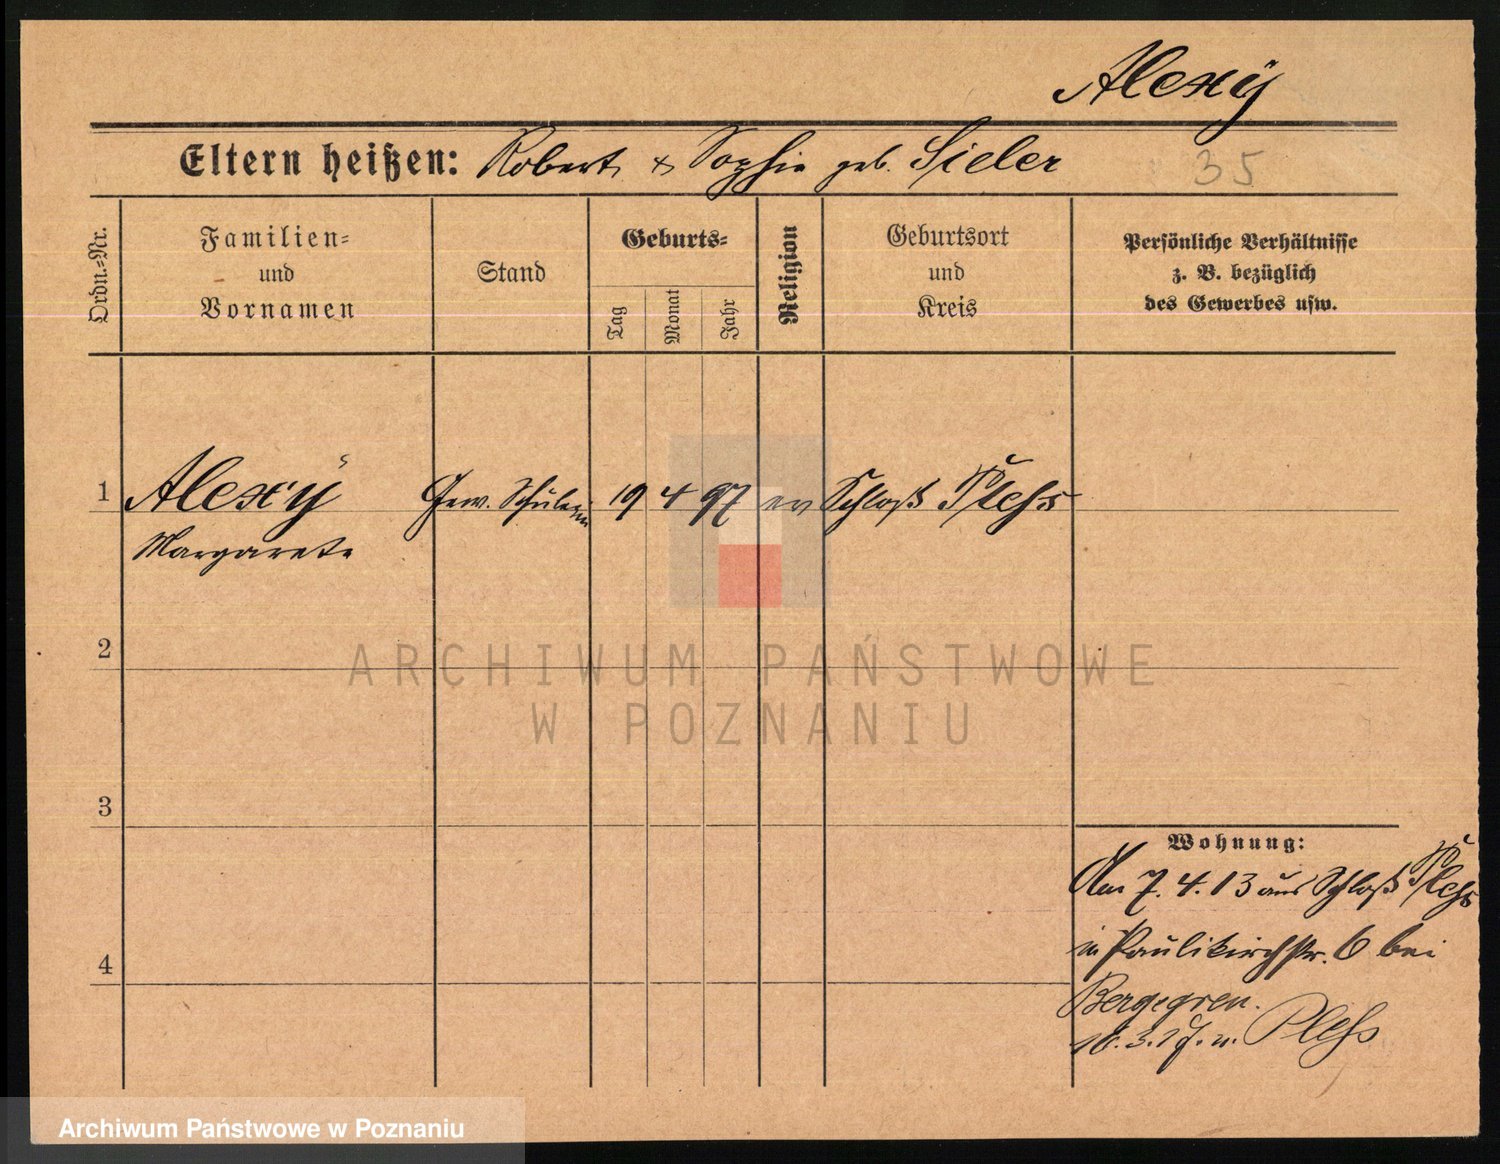 Alexÿ
Eltern heißen: Robert & Sophie geb. Sieler
35
Ordn.=Nr.
Familien=
und
Vornamen
Stand
Geburts=
Tag
Monat
Jahr
Religion
Geburtsort
und
Kreis
Persönliche Verhältnisse
z. B. bezüglich
des Gewerbes usw.
1 Alexÿ Gew. Schülerin 19 4 97 ev Schloß Pless
Margarete
2
3
4
Wohnung:
Am 7. 4. 13 aus Schloß Pless
in Paulikirchstr. 6 bei
Pless
ARCHIWUM PAŃSTWOWE
W POZNANIU
Archiwum Państwowe w Poznaniu